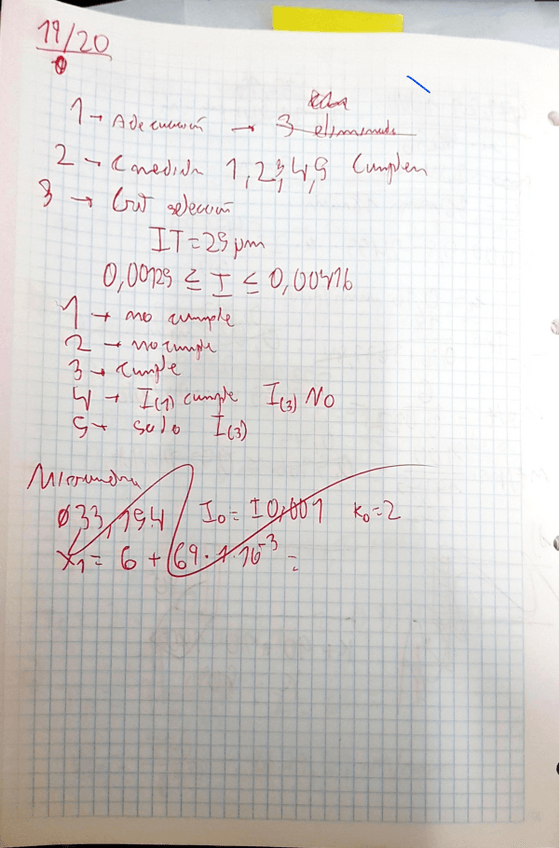 19/20
1 → Adecuación → 3 eliminado
2 → C medida 1,2,3,4,5 Cumplen
3 → Crit selección
IT = 25 μm
0,00125 ≤ I ≤ 0,00416
1 → no cumple
2 → no cumple
3 → Cumple
4 → I(1) cumple I(3) No
5 → solo I(3)
ø33,194 I₀ = ±0,001 k₀=2
X₁ = 6 + 69·1·10⁻³ =